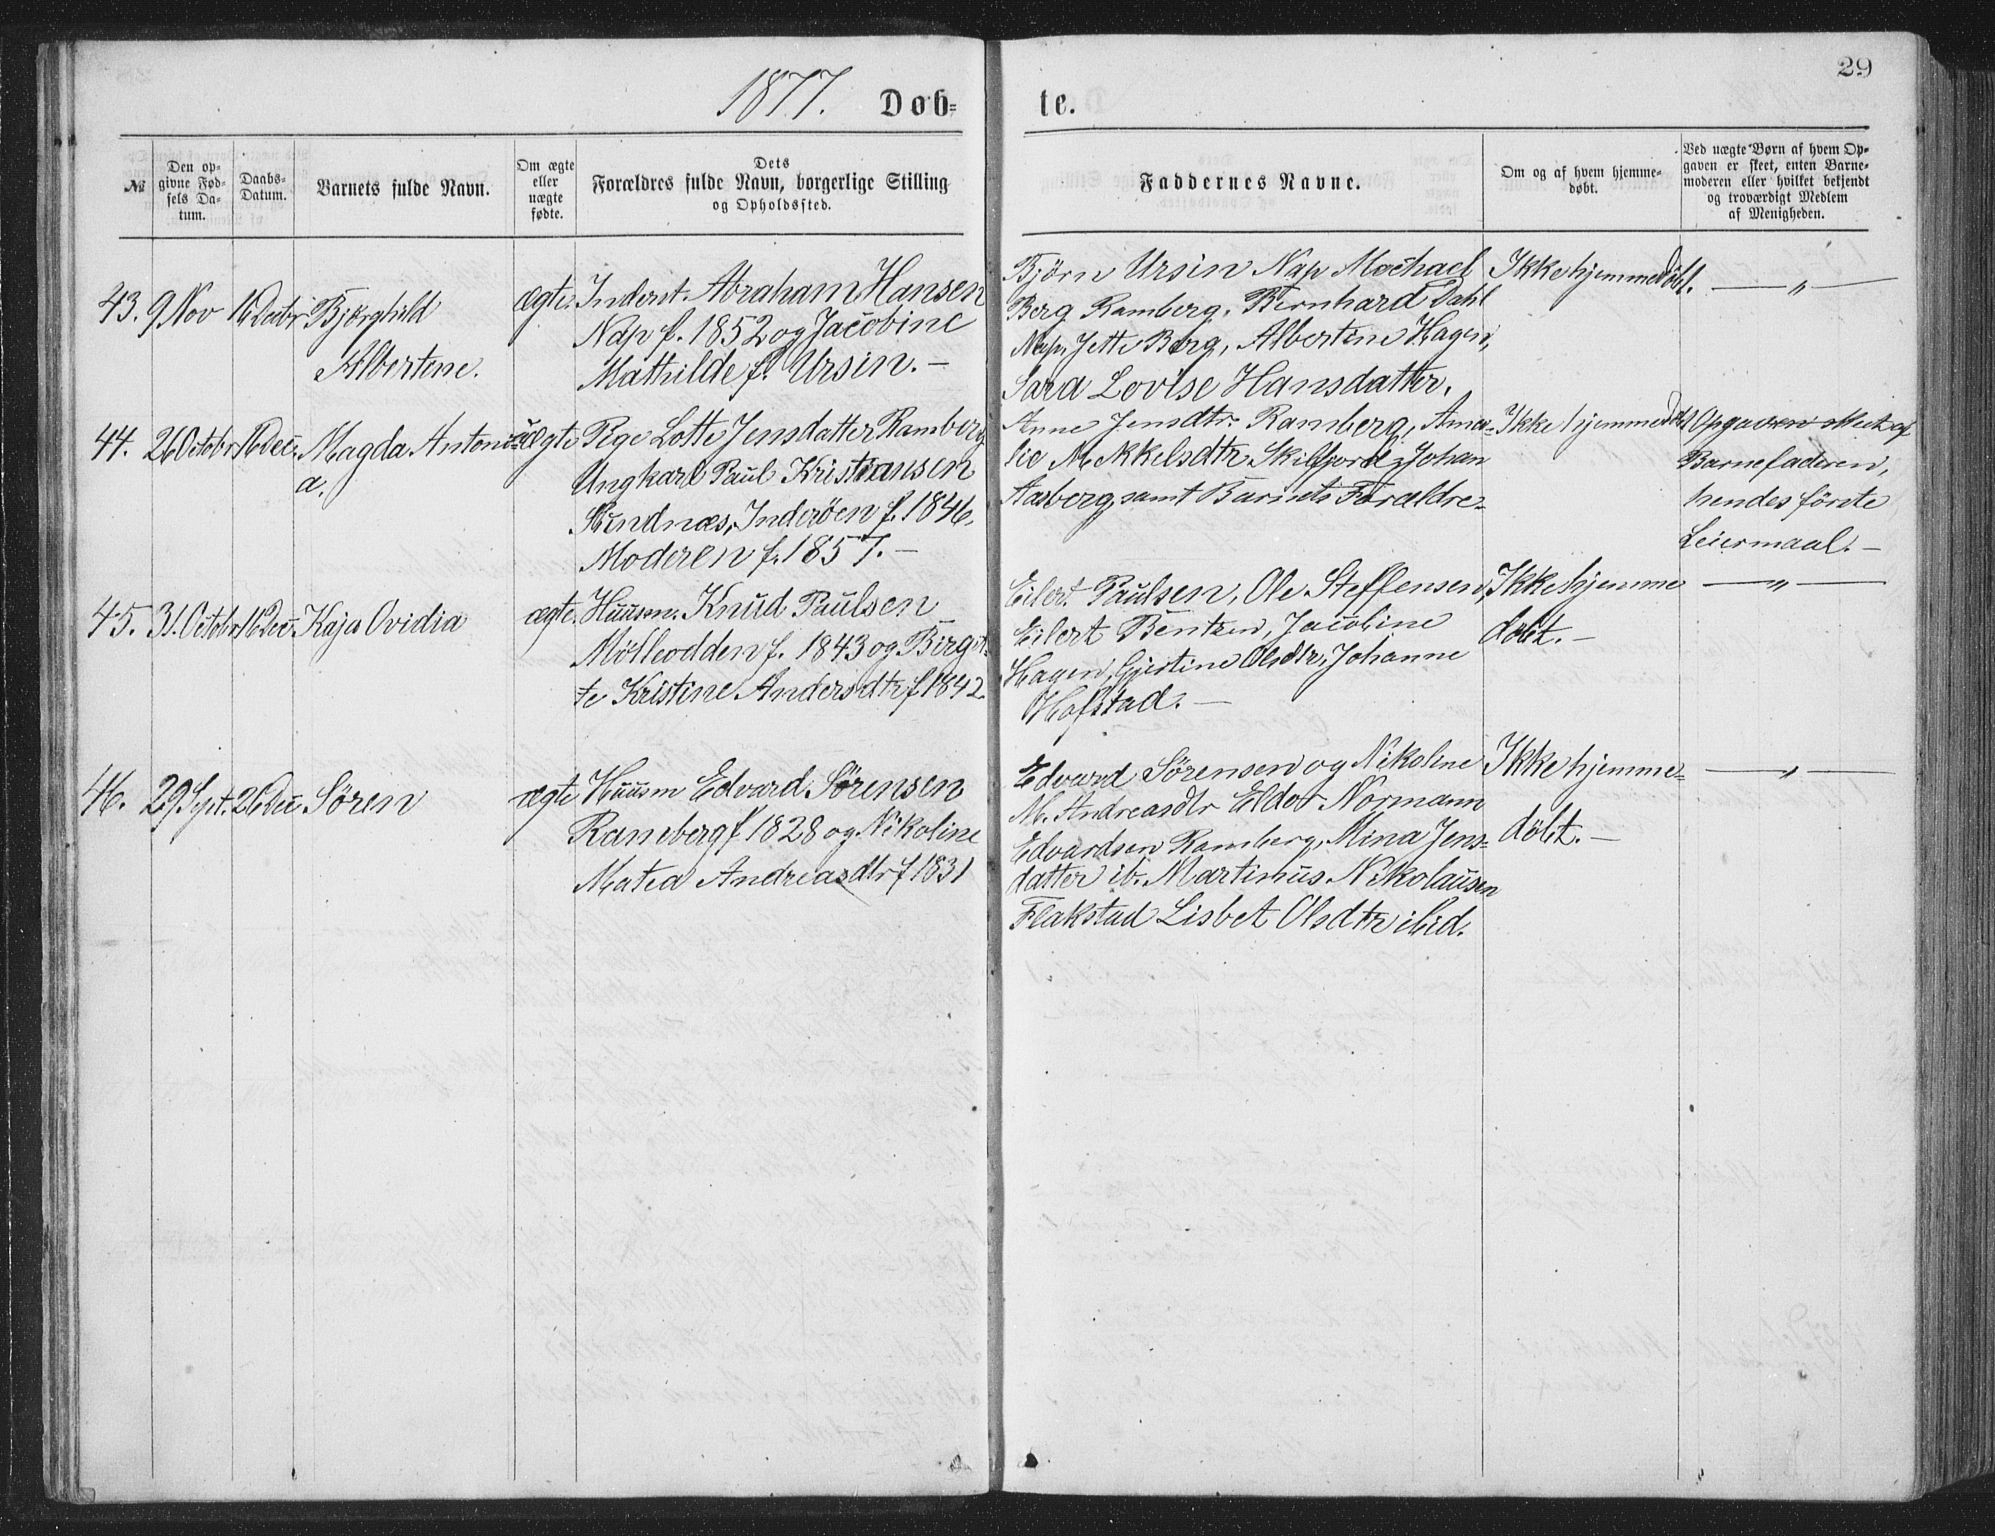 29
1877. Døb-
te.
№
Den op-
givne Fød-
sels Da-
tum.
Daabs-
Datum.
Barnets fulde Navn.
Om ægte
eller
uægte
fødte.
Dets
Forældres fulde Navn, borgerlige Stilling
og Opholdssted.
Faddernes Navne.
Om og af hvem hjemme-
døbt.
Ved uægte Børn af hvem Op-
gaven er skeet, enten Barne-
moderen eller hvilket bekjendt
og troværdigt Medlem
af Menigheden.
43. 9 Nov 16 Decbr Bjørghild
Albertine.
ægte. Inderst. Abraham Hansen
Nap f. 1852 og Jacobine
Mathilde f. Ursin. –
Björn Ursin Nap Michael
Berg Ramberg, Bernhard Dahl
Nap, Jette Berg, Albertine Hagen,
Sara Lovise Hansdatter.
Ikke hjemmedöbt.
— „ —
44. 26 Octobr 16 Dec. Magda Antoni-
a.
uægte Pige Lotte Jensdatter Ramberg
Ungkarl Paul Kristiansen
Inderöen f. 1846.
Moderen f. 1857. –
Anne Jensdtr. Ramberg, Ama-
lie Mikkelsdtr Skilfjord, Johan
Aasberg, samt Barnets Forældre-
Ikke hjemmedöbt
Opgaven skeet af
Barnefaderen,
hendes förste
Leiermaal. –
45. 31. Octobr 16 Dec. Kaja Ovidia
ægte. Huusm. Knud Paulsen
Mølleodden f. 1843 og Birgit-
te Kristine Andersdtr f 1842.
Eilert Paulsen, Ole Steffensen,
Eilert Bentzen, Jacobine
Hagen, Gjertine Olsdtr, Johanne
Hofstad. –
Ikke hjemme
döbt. –
— „ —
46. 29 Sept. 26 Dec Søren
ægte Huusm Edvard Sørensen
Raneberg f 1828 og Nikoline
Matea Andreasdtr f 1831
Edvard Sörensen og Nikoline
M. Andreasdtr Eldor Normann
Edvardsen Ramberg, Mina Jens-
datter ib. Martinus Nikolausen
Flakstad Lisbet Olsdtr ibid.
Ikke hjemme-
döbt. –
— „ —